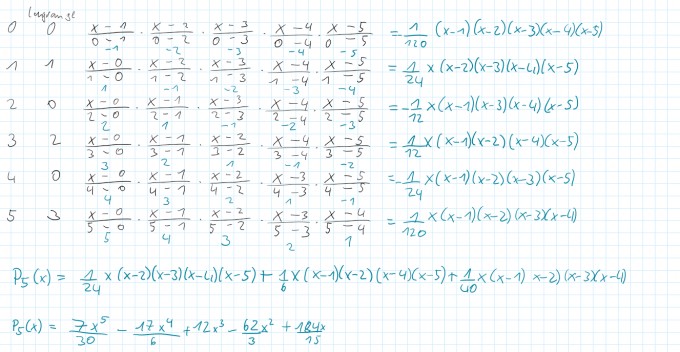 Lagrange
0 0 x-1/0-1 · x-2/0-2 · x-3/0-3 · x-4/0-4 · x-5/0-5 = 1/120 (x-1)(x-2)(x-3)(x-4)(x-5)
-1 -2 -3 -4 -5
1 1 x-0/1-0 · x-2/1-2 · x-3/1-3 · x-4/1-4 · x-5/1-5 = 1/24 x(x-2)(x-3)(x-4)(x-5)
1 -1 -2 -3 -4
2 0 x-0/2-0 · x-1/2-1 · x-3/2-3 · x-4/2-4 · x-5/2-5 = -1/12 x(x-1)(x-3)(x-4)(x-5)
2 1 -1 -2 -3
3 2 x-0/3-0 · x-1/3-1 · x-2/3-2 · x-4/3-4 · x-5/3-5 = 1/12 x(x-1)(x-2)(x-4)(x-5)
3 2 1 -1 -2
4 0 x-0/4-0 · x-1/4-1 · x-2/4-2 · x-3/4-3 · x-5/4-5 = -1/24 x(x-1)(x-2)(x-3)(x-5)
4 3 2 1 -1
5 3 x-0/5-0 · x-1/5-1 · x-2/5-2 · x-3/5-3 · x-4/5-4 = 1/120 x(x-1)(x-2)(x-3)(x-4)
5 4 3 2 1
P5(x) = 1/24 x(x-2)(x-3)(x-4)(x-5) + 1/6 x(x-1)(x-2)(x-4)(x-5) + 1/40 x(x-1) x-2)(x-3)(x-4)
P5(x) = 7x^5/30 - 17x^4/6 + 12x^3 - 62x^2/3 + 184x/15